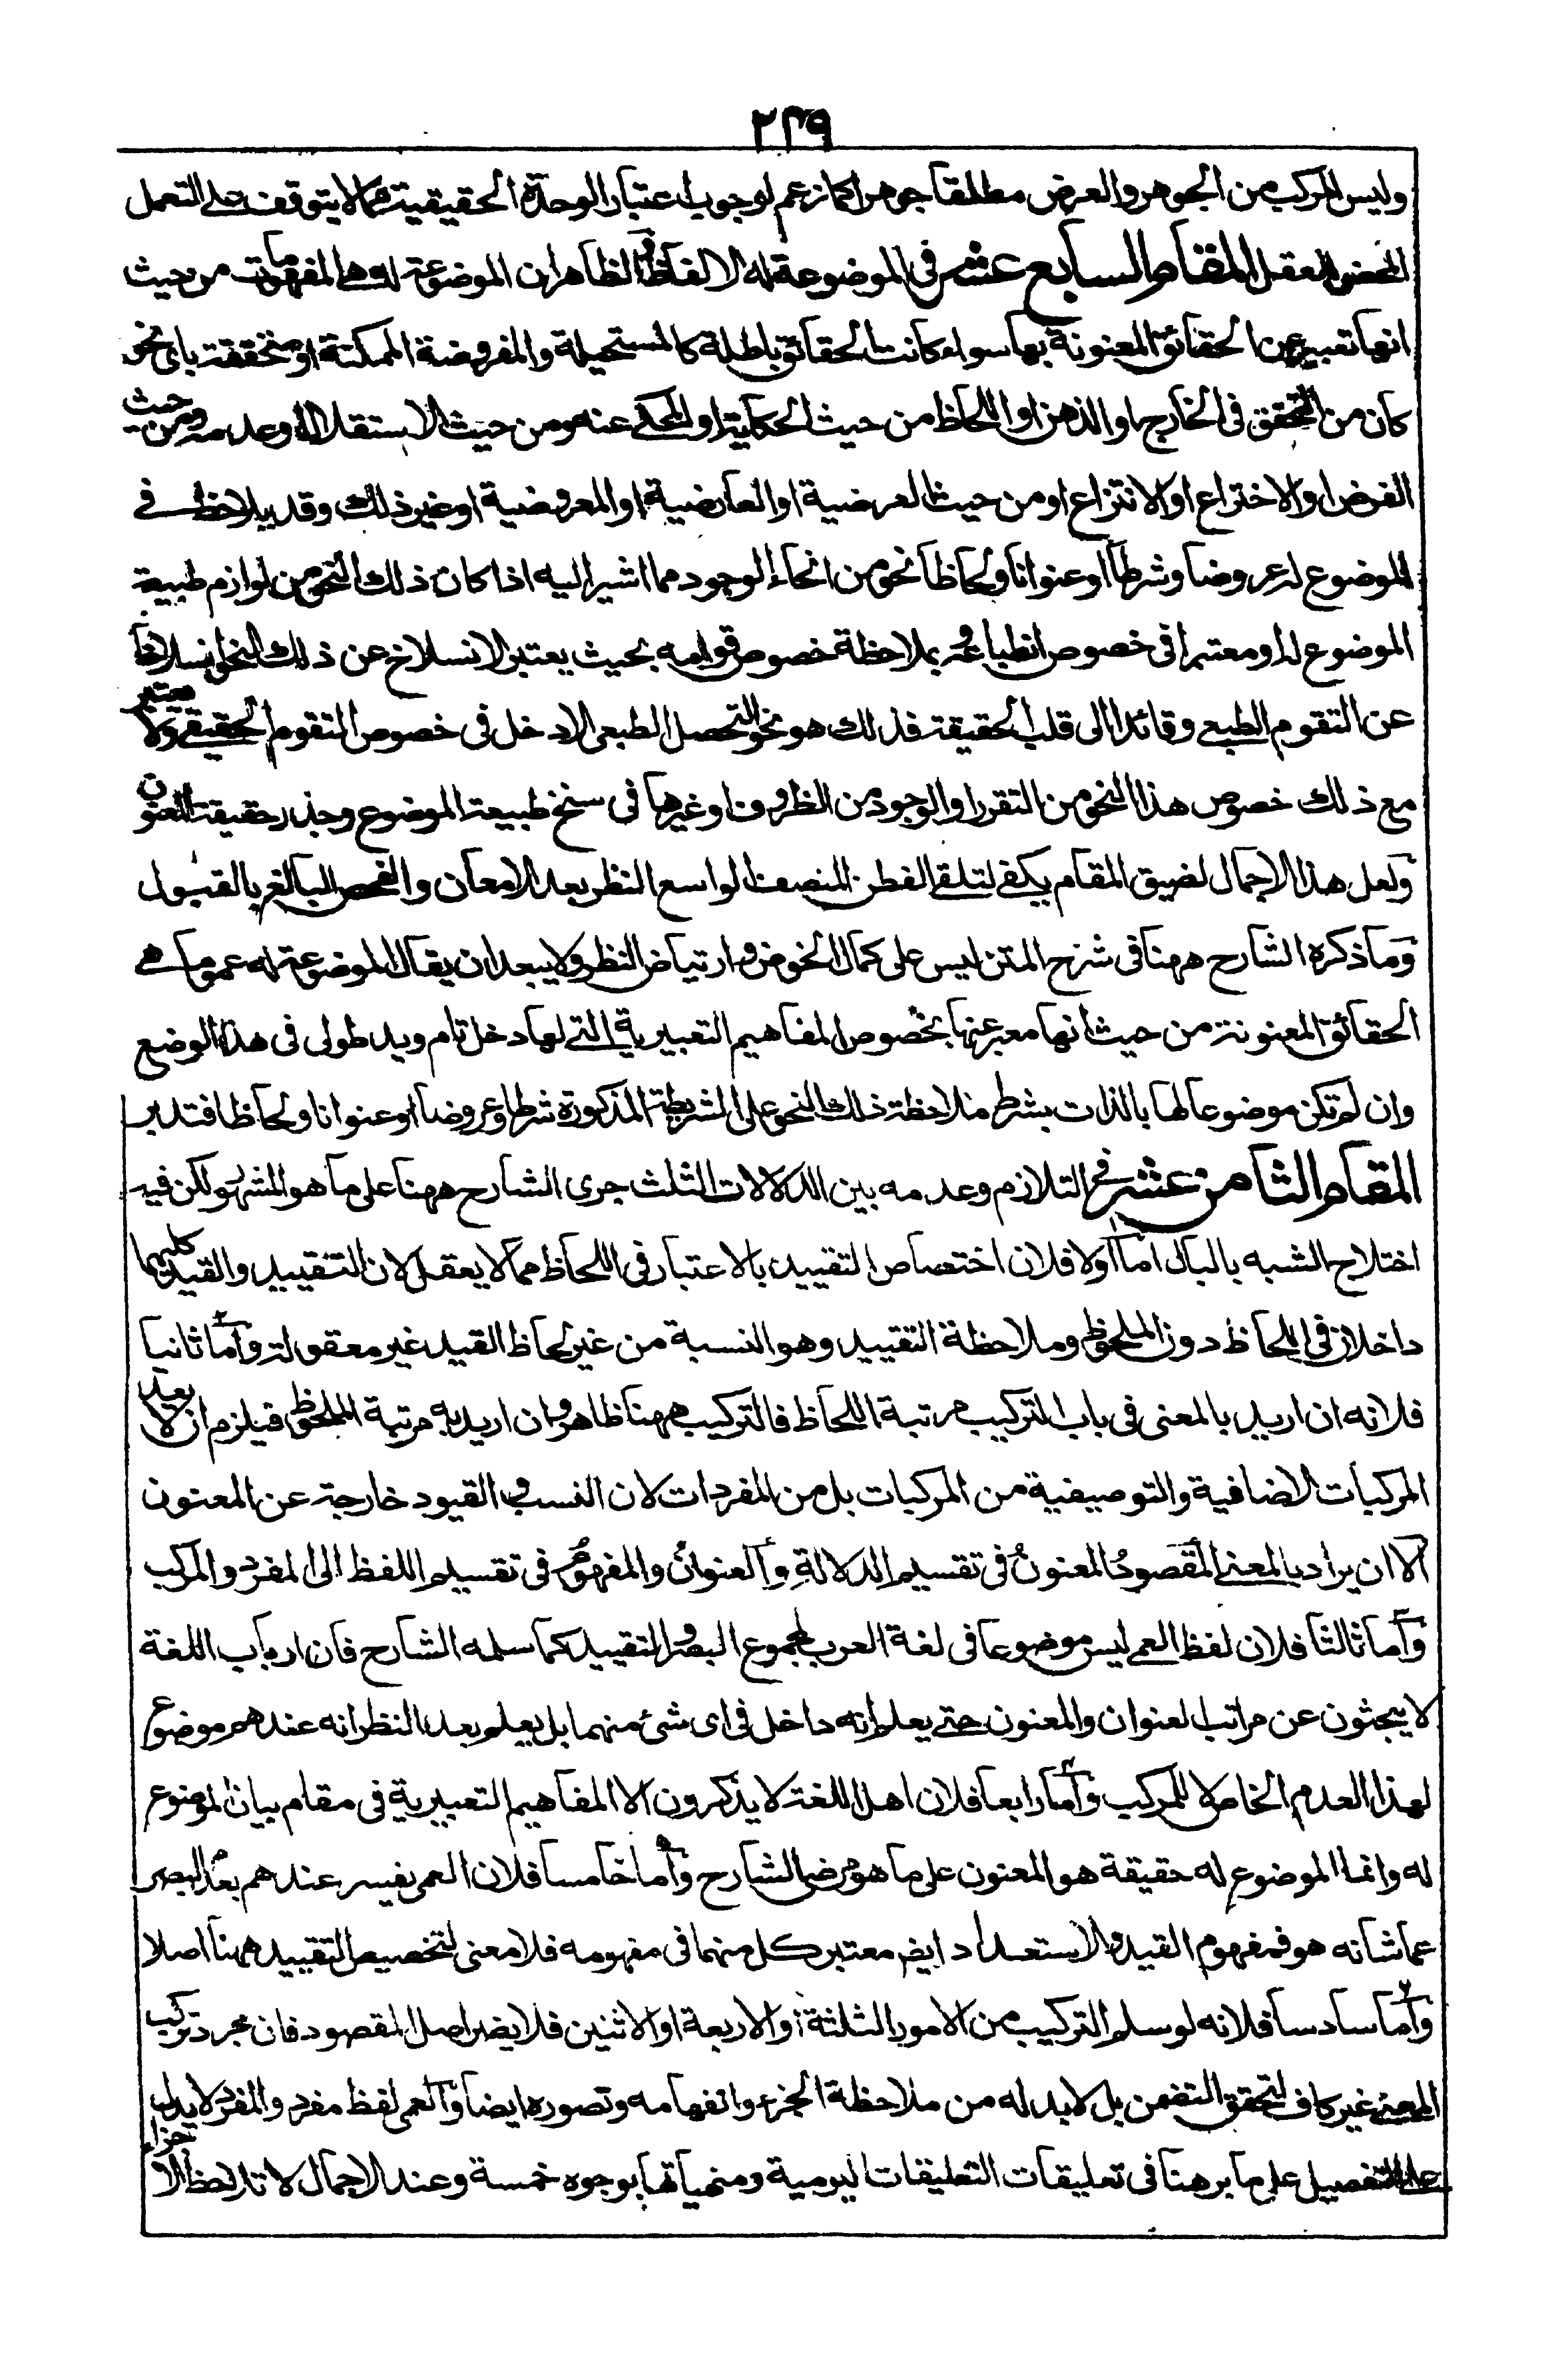 ٢٤٩
وليس المركب من الجوهر والعرض مطلقا جوهرا كما زعم لوجوب اعتبار الوحدة الحقيقية مما لا يتوقف على التعمل
المحض للعقل المقام السابع عشر في الموضوعة له الالفاظ والظاهر ان الموضوعة له هي المفهومات من حيث
انها تعبير عن الحقائق المعنونة بها سواء كانت الحقائق باطلة كالمستحيلة والمفروضة الممكنة او متحققة باي نحو
كان من التحقق في الخارج او الذهن او اللحاظ من حيث الحكاية او المحكي عنه ومن حيث الاستقلال او عدمه ومن حيث
الفرض او الاختراع او الانتزاع او من حيث العرضية او العارضية او المعروضية او غير ذلك وقد يلاحظ في
الموضوع له عروضا وشرطا او عنوانا ولحاظا نحو من انحاء الوجود مما اشير اليه اذا كان ذلك النحو من لوازم طبيعة
الموضوع له او معتبرا في خصوص انطباعه بملاحظة خصوص قوامه بحيث يعتبر الانسلاخ عن ذلك النحو انسلاخا
عن التقوم الطبعي وقائدا الى قلب الحقيقة فذلك هو نحو التحصل الطبعي الادخل في خصوص التقوم الحقيقي ولا يعتبر
مع ذلك خصوص هذا النحو من التقرر والوجود من الظروف او غيرها في سنخ طبيعة الموضوع وجذر حقيقة المعنون
ولعل هذا الاجمال لضيق المقام يكفي لتلقي الفطن المنصف الواسع النظر بعد الامعان والفحص البالغ بالقبول
وما ذكره الشارح ههنا في شرح المتن ليس على كمال الخوض وارتياض النظر ولا يبعد ان يقال الموضوعة له عموما هي
الحقائق المعنونة من حيث انها معبر عنها بخصوص المفاهيم التعبيرية التي لها دخل تام ويد طولى في هذا الوضع
وان لم تكن موضوعا لها بالذات بشرط ملاحظة ذلك النحو على الشريطة المذكورة شرطا وعروضا او عنوانا ولحاظا فتدبر
المقام الثامن عشر في التلازم وعدمه بين الدلالات الثلث جرى الشارح ههنا على ما هو المشهور لكن فيه
اختلاج الشبه بالبال اما اولا فلان اختصاص التقييد بالاعتبار في اللحاظ مما لا يعقل لان التقييد والقيد كليهما
داخلان في اللحاظ دون الملحوظ وملاحظة التقييد وهو النسبة من غير لحاظ القيد غير معقولة واما ثانيا
فلانه ان اريد بالمعنى في باب التركيب مرتبة اللحاظ فالتركيب ههنا ظاهر وان اريد به مرتبة الملحوظ فيلزم ان لا يعد
المركبات الاضافية والتوصيفية من المركبات بل من المفردات لان النسب والقيود خارجة عن المعنون
الا ان يراد بالمعنى المقصود المعنون في تقسيم الدلالة والعنوان والمفهوم في تقسيم اللفظ الى المفرد والمركب
واما ثالثا فلان لفظ العمى ليس موضوعا في لغة العرب لمجموع البصر والتقييد كما سلمه الشارح فان ارباب اللغة
لا يبحثون عن مراتب العنوان والمعنون حتى يعلم انه داخل في اي شئ منهما بل يعلم بعد النظر انه عندهم موضوع
لهذا العدم الخاص لا للمركب واما رابعا فلان اهل اللغة لا يذكرون الا المفاهيم التعبيرية في مقام بيان الموضوع
له وانما الموضوع له حقيقة هو المعنون على ما هو مرضي الشارح واما خامسا فلان العمى يفسر عندهم بعدم البصر
عما شانه هو فمفهوم القيد والاستعداد ايض معتبر كل منهما في مفهومه فلا معنى لتخصيص التقييد ههنا اصلا
واما سادسا فلانه لو سلم التركيب من الامور الثلثة او الاربعة او الاثنين فلا يضر اصل المقصود فان مجرد تركيب
المعنى غير كاف لتحقق التضمن بل لا بد له من ملاحظة الجزء وانفهامه وتصوره ايضا والعمى لفظ مفرد والمفرد لا يدل
على التفصيل على ما برهنا في تعليقات التعليقات اليومية ومنهياتها بوجوه خمسة وعند الاجمال لا تلاحظ الاجزاء